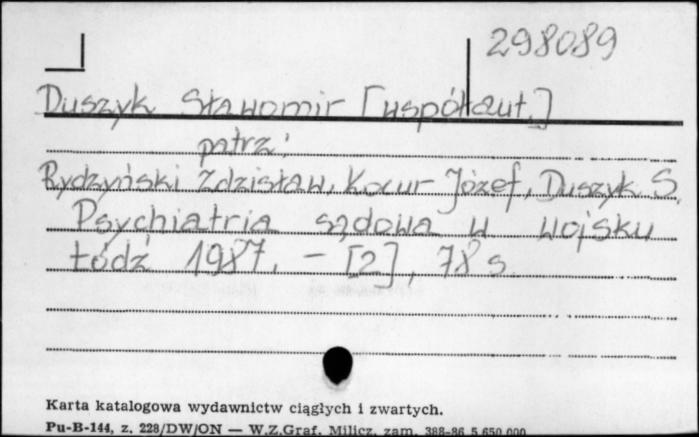 298089
Duszyk Sławomir [współaut.]
patrz:
Rydzyński Zdzisław, Kocur Józef, Duszyk S.
Psychiatria sądowa w wojsku
Łódź 1987. - [2], 78 s.
Karta katalogowa wydawnictw ciągłych i zwartych.
Pu-B-144, z. 228/DW/ON — W.Z.Graf. Milicz, zam. 388-86 5.650.000